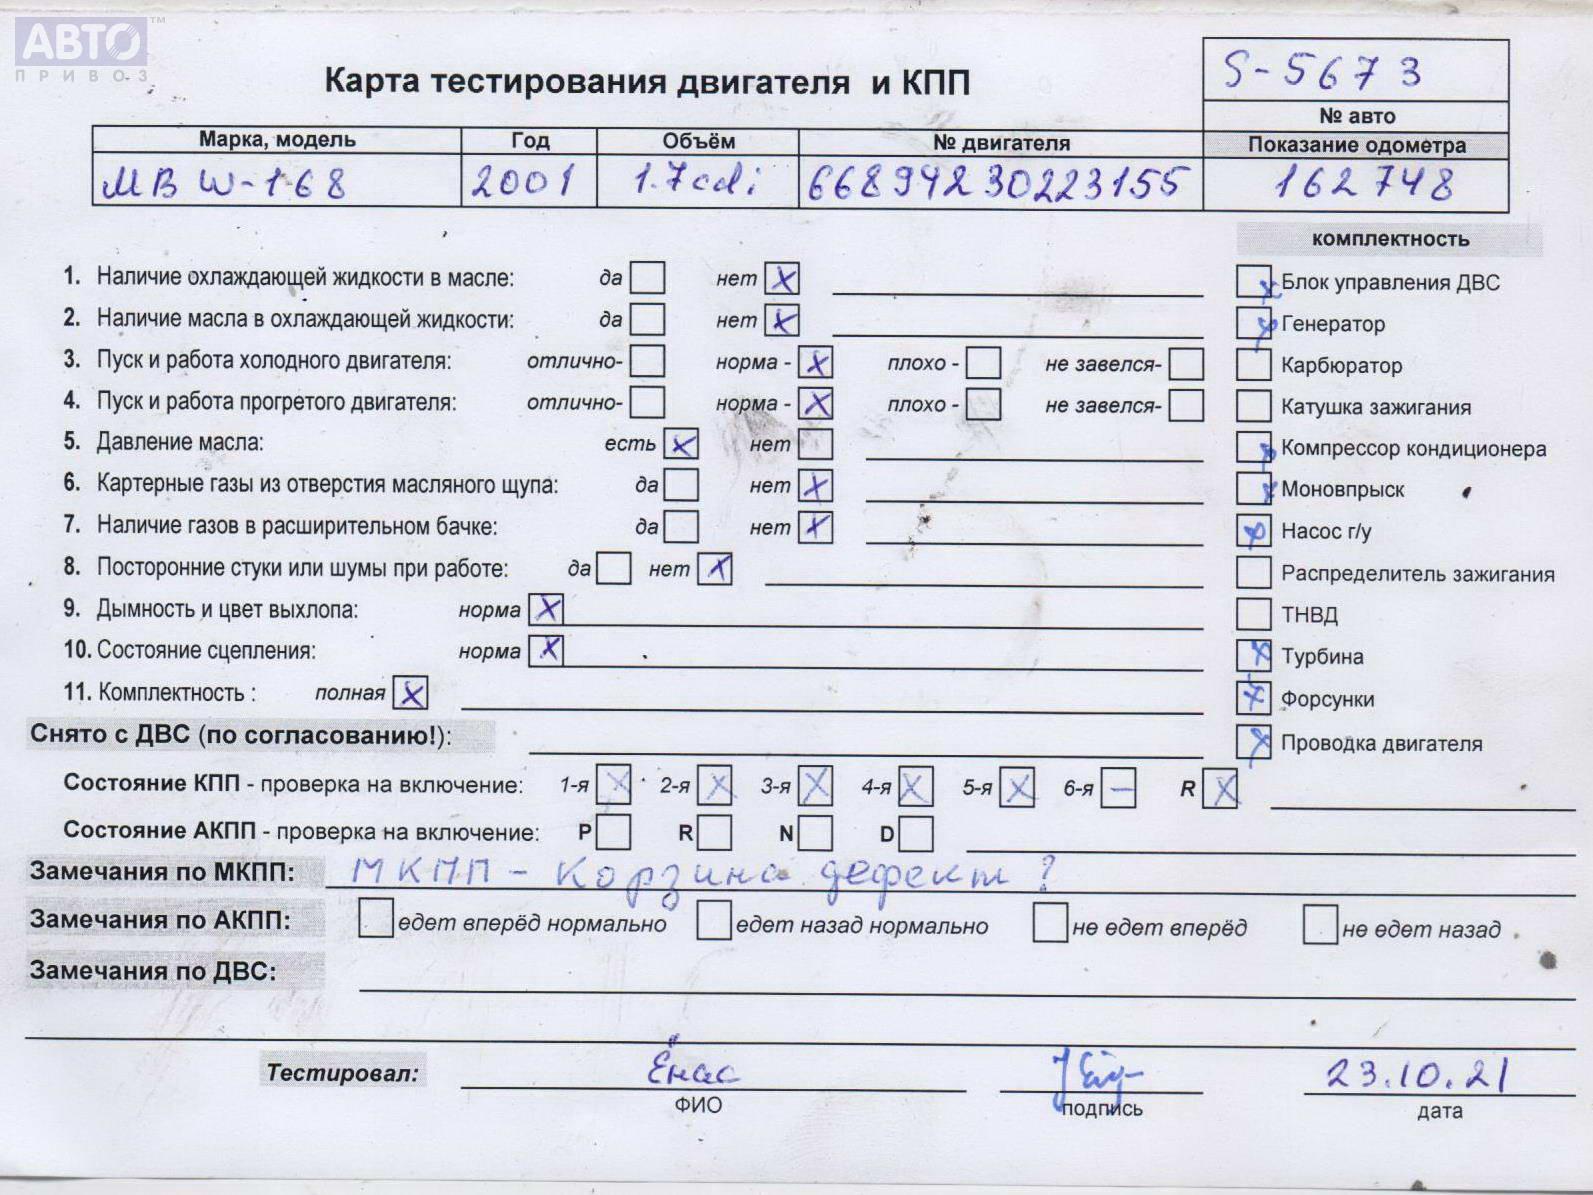 АВТО™
ПРИВОЗ
Карта тестирования двигателя и КПП
S-5673
№ авто
Марка, модель Год Объём № двигателя Показание одометра
MB W-168 2001 1.7cdi 66894230223155 162748
комплектность
1. Наличие охлаждающей жидкости в масле: да нет X
Блок управления ДВС
2. Наличие масла в охлаждающей жидкости: да нет X
Генератор
3. Пуск и работа холодного двигателя: отлично- норма - X плохо - не завелся-
Карбюратор
4. Пуск и работа прогретого двигателя: отлично- норма - X плохо - не завелся-
Катушка зажигания
5. Давление масла: есть X нет
Компрессор кондиционера
6. Картерные газы из отверстия масляного щупа: да нет X
Моновпрыск
7. Наличие газов в расширительном бачке: да нет X
Насос г/у
8. Посторонние стуки или шумы при работе: да нет X
Распределитель зажигания
9. Дымность и цвет выхлопа: норма X
ТНВД
10. Состояние сцепления: норма X
Турбина
11. Комплектность : полная X
Форсунки
Снято с ДВС (по согласованию!):
Проводка двигателя
Состояние КПП - проверка на включение: 1-я X 2-я X 3-я X 4-я X 5-я X 6-я — R X
Состояние АКПП - проверка на включение: P R N D
Замечания по МКПП: МКПП - Корзина дефект ?
Замечания по АКПП: едет вперёд нормально едет назад нормально не едет вперёд не едет назад
Замечания по ДВС:
Тестировал: 23.10.21
ФИО подпись дата